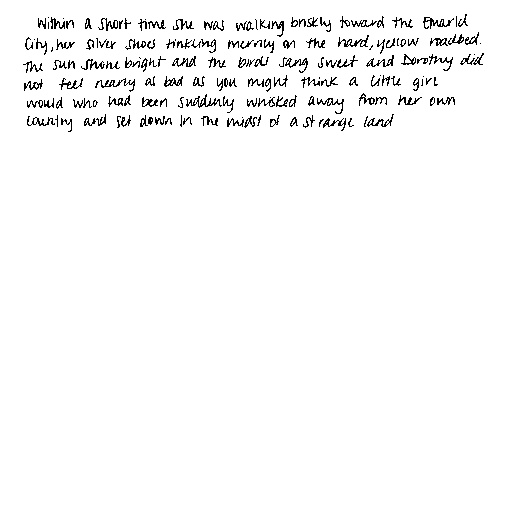 Within a short time she was walking briskly toward the Emarld
City, her silver shoes tinkling merrily on the hard, yellow roadbed.
The sun shone bright and the birds sang sweet and Dorothy did
not feel nearly as bad as you might think a little girl
would who had been suddenly whisked away from her own
country and set down in the midst of a strange land